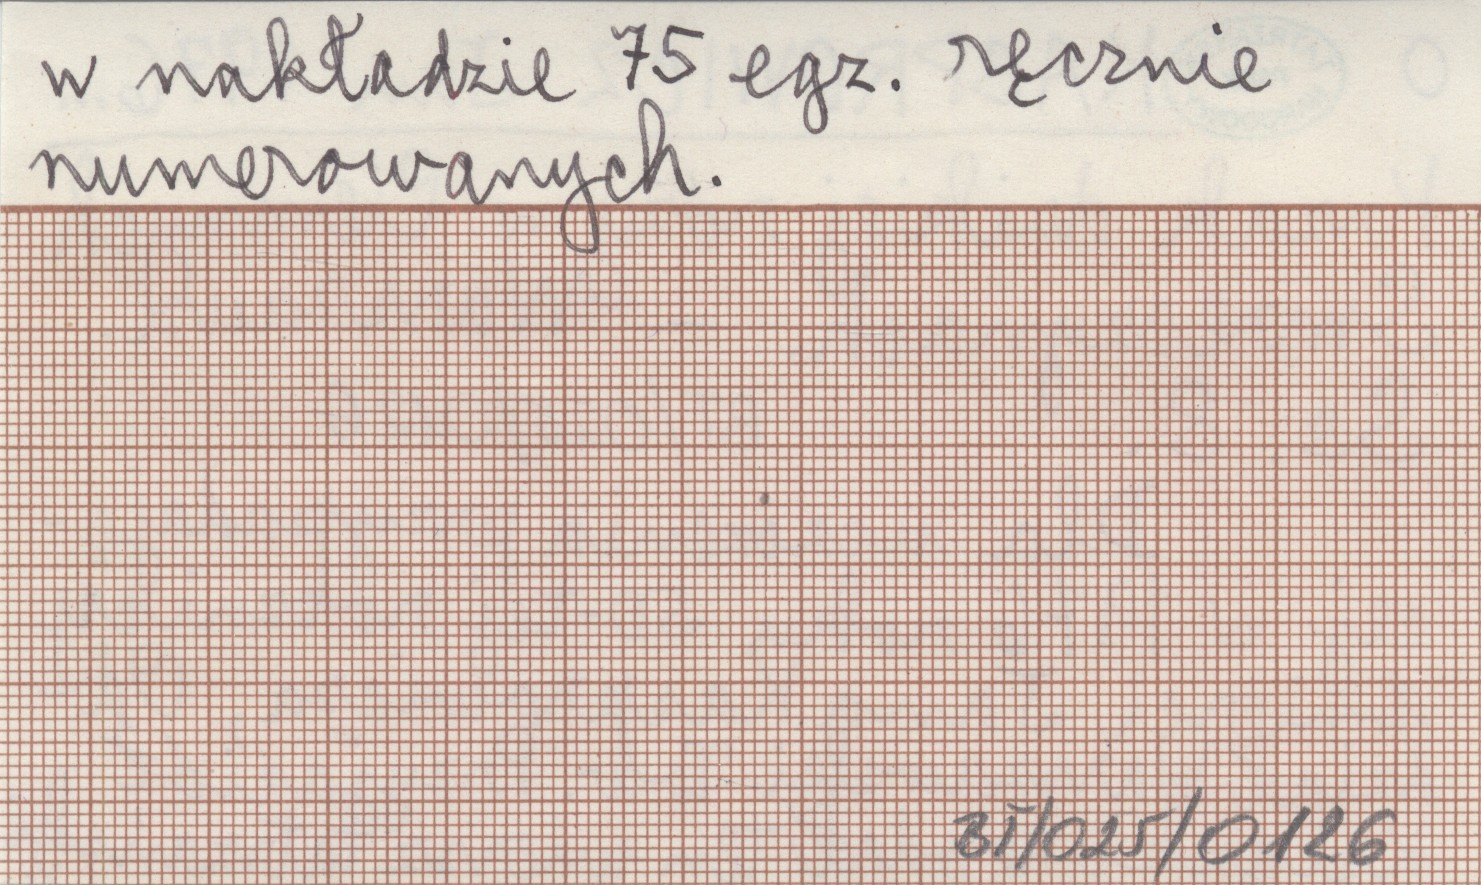 w nakładzie 75 egz. ręcznie
numerowanych.
BI/025/0126